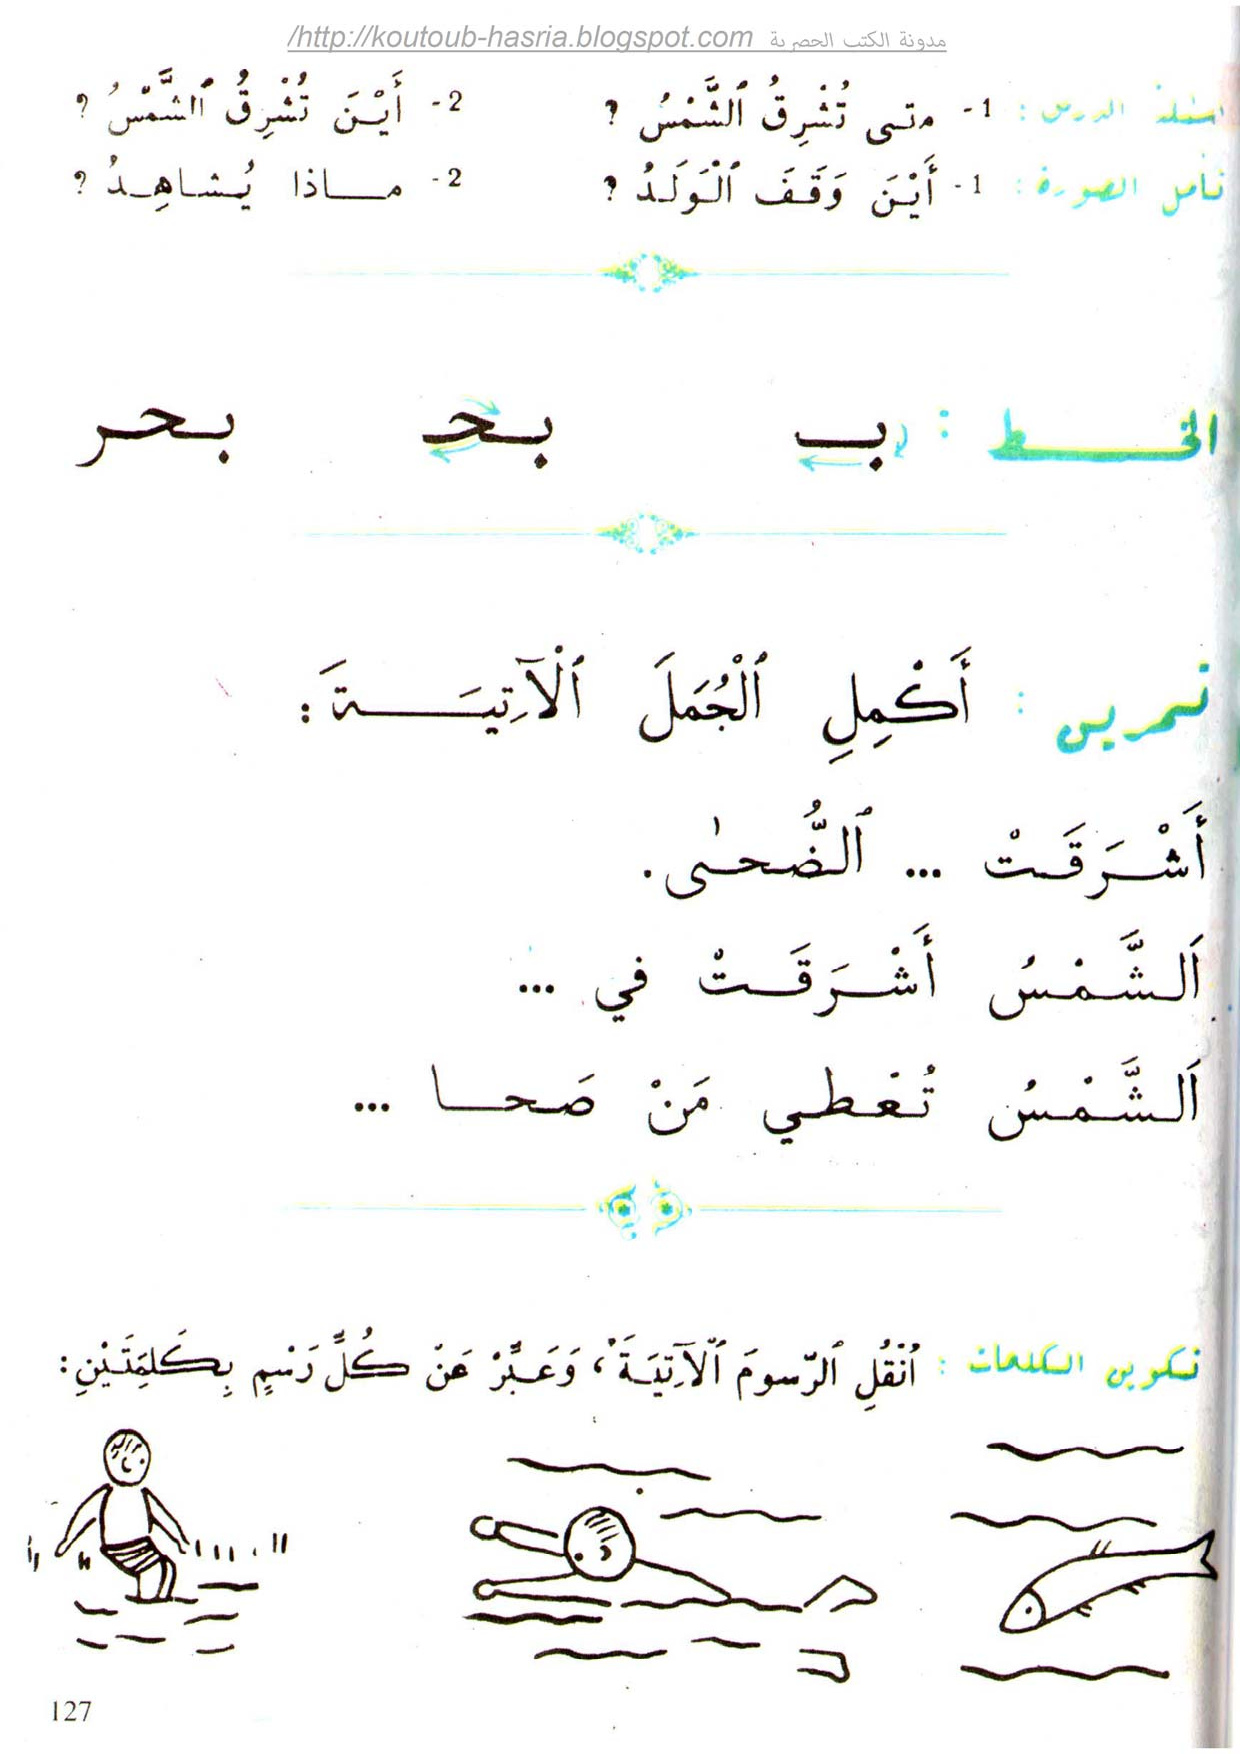 مدونة الكتب الحصرية http://koutoub-hasria.blogspot.com/
اسئلة الدرس : 1- متى تُشْرِقُ ٱلشَّمْسُ ؟ 2- أَيْنَ تُشْرِقُ ٱلشَّمْسُ ؟
تأمل الصورة : 1- أَيْنَ وَقَفَ ٱلْوَلَدُ ؟ 2- مــاذا يُشاهِدُ ؟
الخط : بـ بحـ بحر
تمرين : أَكْمِلِ ٱلْجُمَلَ ٱلْآتِيَةَ :
أَشْرَقَتْ ... ٱلضُّحىٰ .
اَلشَّمْسُ أَشْرَقَتْ في ...
اَلشَّمْسُ تُعْطي مَنْ صَحا ...
تكوين الكلمات : اُنْقُلِ ٱلرّسومَ ٱلْآتِيَةَ ، وَعَبِّرْ عَنْ كُلِّ رَسْمٍ بِكَلِمَتَيْنِ :
127